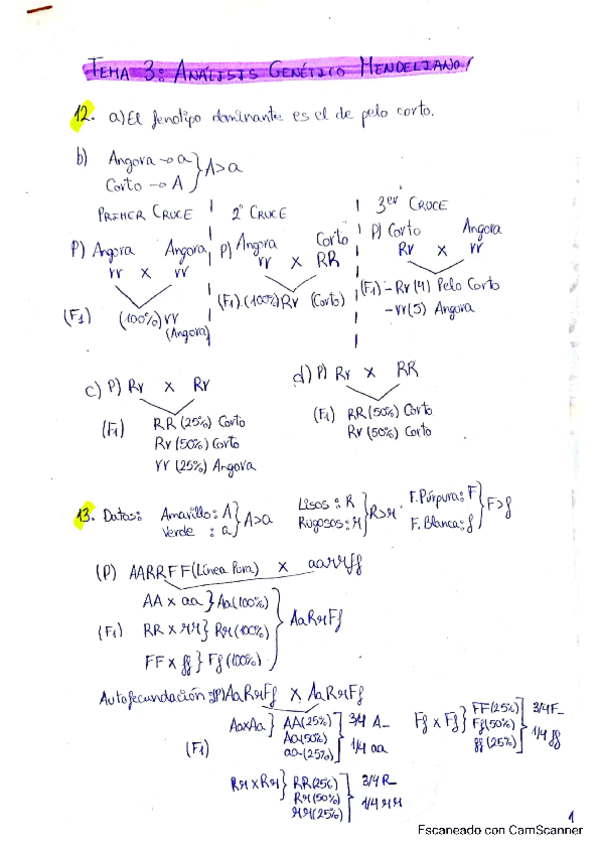 TEMA 3: ANÁLISIS GENÉTICO MENDELIANO/
12. a) El fenotipo dominante es el de pelo corto.
b) Angora → a } A>a
Corto → A
PRIMER CRUCE
P) Angora Angora
rr x rr
(F1) (100%) rr
(Angora)
2º CRUCE
P) Angora Corto
rr x RR
(F1) (100%) Rr (Corto)
3er CRUCE
P) Corto Angora
Rr x rr
(F1) - Rr (4) Pelo Corto
- rr (5) Angora
c) P) Rr x Rr
(F1) RR (25%) Corto
Rr (50%) Corto
rr (25%) Angora
d) P) Rr x RR
(F1) RR (50%) Corto
Rr (50%) Corto
13. Datos: Amarillo: A } A>a Lisos: R } R>r. F. Púrpura: F } F>f
Verde : a Rugosos: r F. Blanca: f
(P) AARRFF (Línea Pura) x aarrff
AA x aa } Aa (100%)
(F1) RR x rr } Rr (100%) } AaRrFf
FF x ff } Ff (100%)
Autofecundación: P) AaRrFf x AaRrFf
(F1)
AaxAa } AA (25%) 3/4 A_
Aa (50%)
aa (25%) 1/4 aa
Ff x Ff } FF (25%) 3/4 F_
Ff (50%)
ff (25%) 1/4 ff
Rr x Rr } RR (25%) 3/4 R_
Rr (50%)
rr (25%) 1/4 rr
1
Escaneado con CamScanner